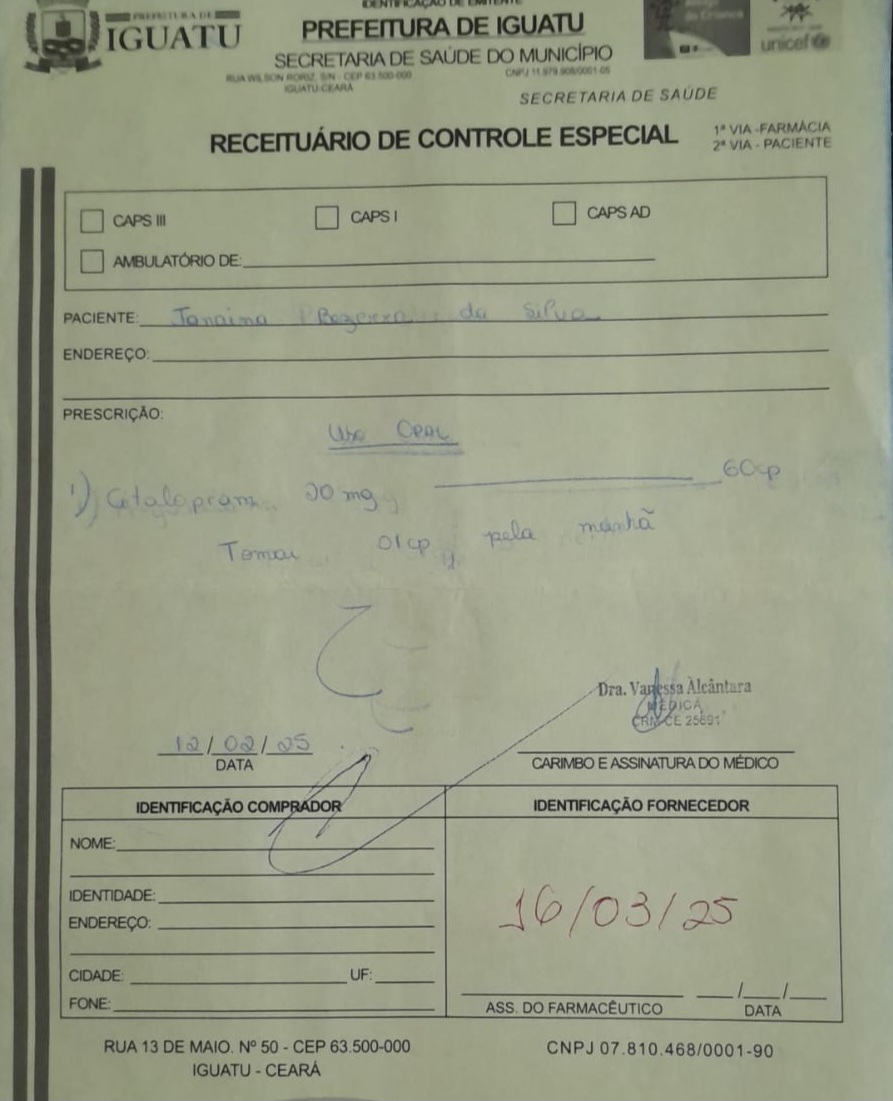 IDENTIFICAÇÃO DE EMITENTE
PREFEITURA DE
IGUATU
PREFEITURA DE IGUATU
SECRETARIA DE SAÚDE DO MUNICÍPIO
RUA WILSON RORIZ, S/N - CEP 63.500-000
IGUATU-CEARÁ
CNPJ 11.979.908/0001-05
unicef
SECRETARIA DE SAÚDE
RECEITUÁRIO DE CONTROLE ESPECIAL
1ª VIA -FARMÁCIA
2ª VIA - PACIENTE
CAPS III CAPS I CAPS AD
AMBULATÓRIO DE:
PACIENTE: Janaina Bezerra da Silva
ENDEREÇO:
PRESCRIÇÃO:
Uso Oral
1) Citalopram 20mg 60cp
Tomar 01cp pela manhã
Dra. Vanessa Alcântara
MÉDICA
CRM-CE 25691
12/02/25
DATA
CARIMBO E ASSINATURA DO MÉDICO
IDENTIFICAÇÃO COMPRADOR
NOME:
IDENTIDADE:
ENDEREÇO:
CIDADE: UF:
FONE:
IDENTIFICAÇÃO FORNECEDOR
16/03/25
ASS. DO FARMACÊUTICO
__/__/__
DATA
RUA 13 DE MAIO. Nº 50 - CEP 63.500-000
IGUATU - CEARÁ
CNPJ 07.810.468/0001-90